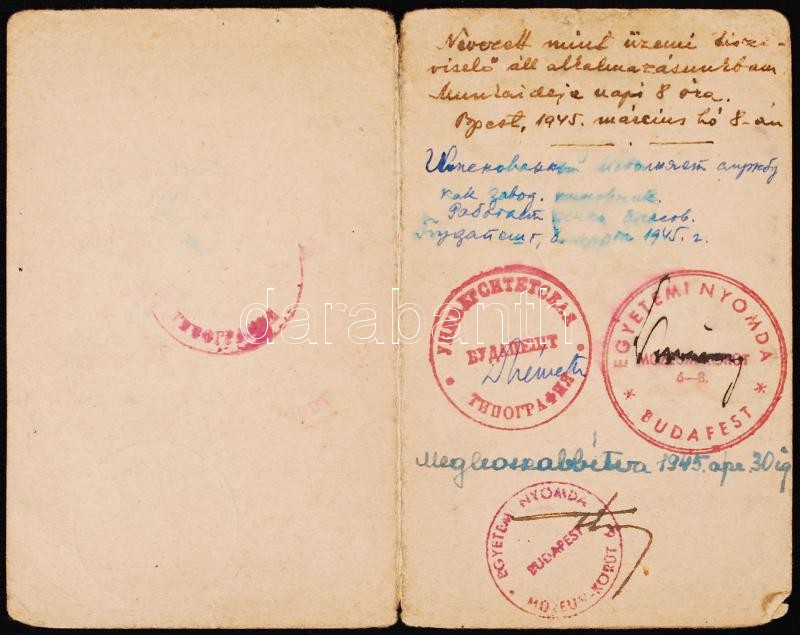 Nevezett mint üzemi tiszt-
viselő áll alkalmazásunkban.
Munkaideje napi 8 óra.
Bpest, 1945. március hó 8-án
исполняет службу
как завод. чиновник.
Работает часов.
Будапешт, 8 марта 1945. г.
УНИВЕРСИТЕТСКАЯ
БУДАПЕШТ
ТИПОГРАФИЯ
EGYETEMI NYOMDA
MÚZEUM-KÖRÚT
6–8.
* BUDAPEST *
ТИПОГРАФИЯ
darabanth
Meghosszabbítva 1945. apr. 30 ig
EGYETEMI NYOMDA
BUDAPEST
MÚZEUM-KÖRÚT